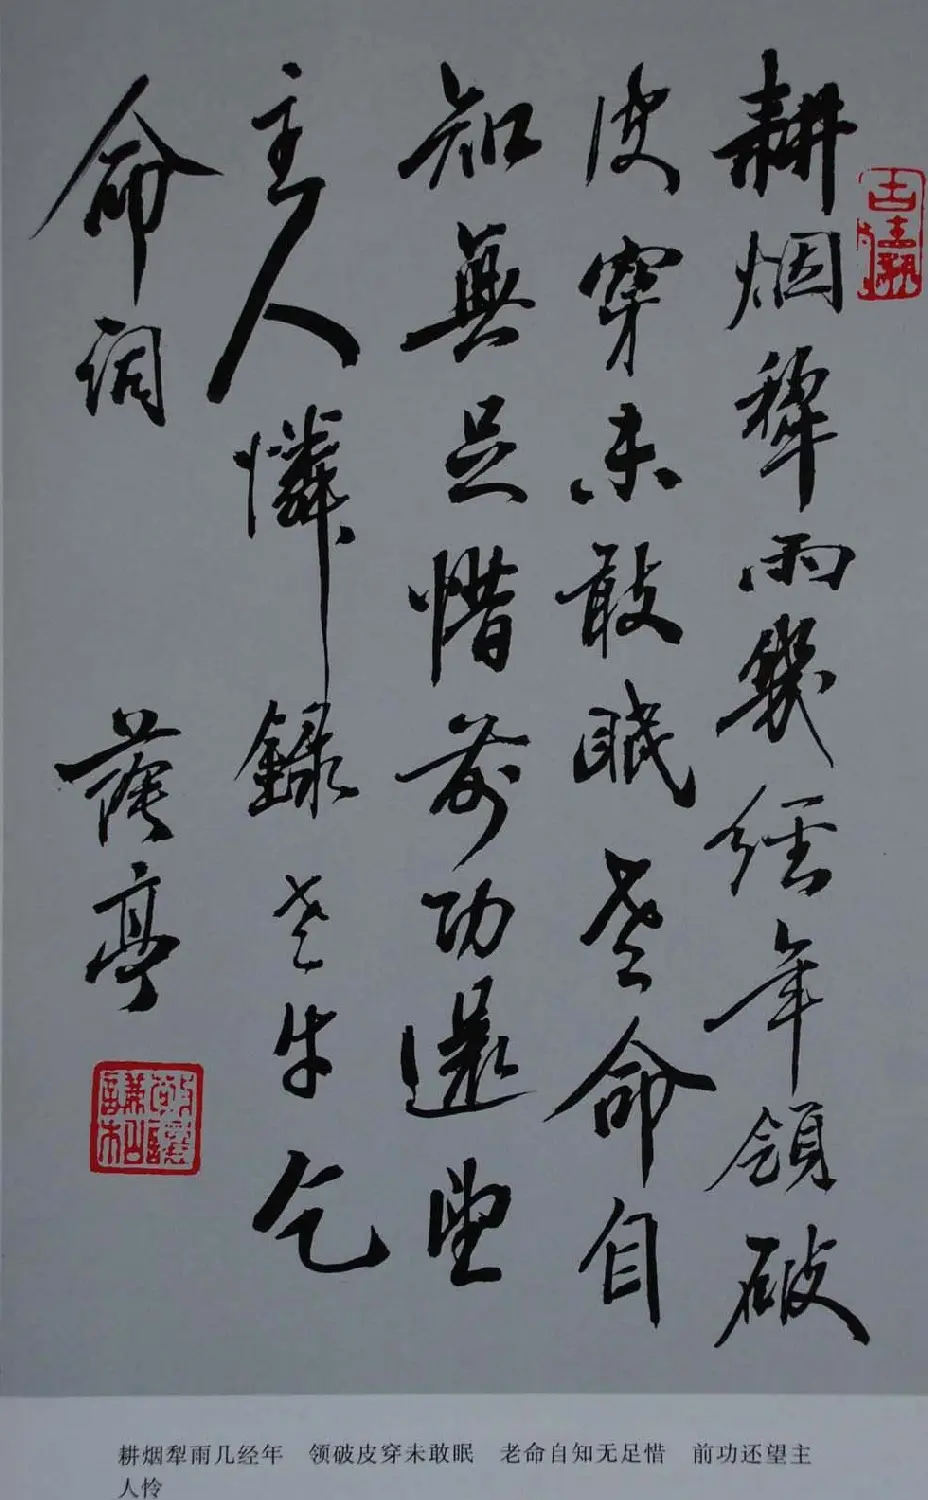 耕烟犂雨幾經年領破
皮穿未敢眠老命自
知無足惜前功還望
主人憐錄老牛乞
命詞
蔭亭
耕烟犁雨几经年 领破皮穿未敢眠 老命自知无足惜 前功还望主
人怜